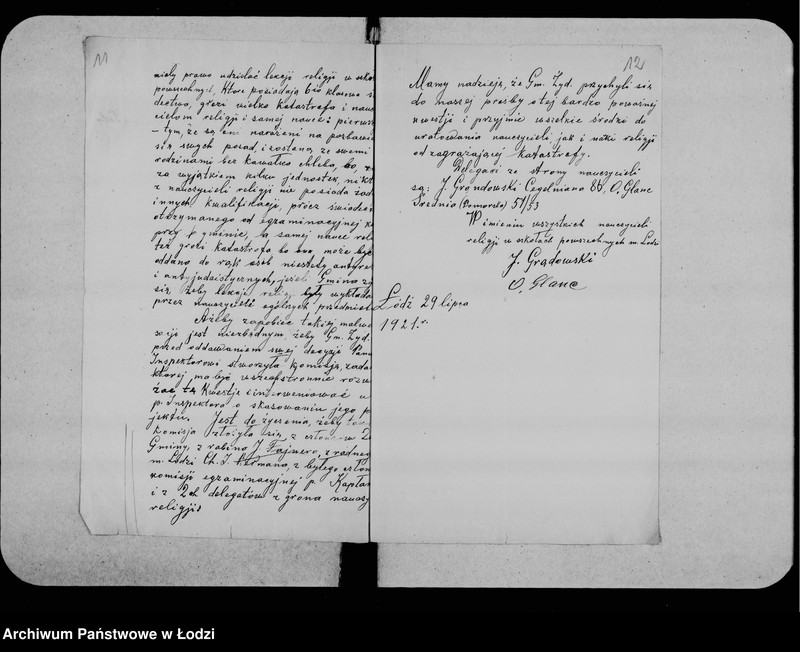 11
miały prawo udzielać lekcji religji w szko
powszechnych, które posiadają 6io klasowe ś
dectwo, grozi wielka katastrofa i nauczy
cielom religji i samej nauce: pierwsz
– tym, że są oni narażeni na pozbawie
się swych posad, i zostaną, ze swemi
rodzinami bez kawałka chleba, bo,
za wyjątkiem kilku jednostek, nikt
z nauczycieli religji nie posiada żad
innych kwalifikacji, prócz świadec
otrzymanego od egzaminacyjnej k
przy gminie, a samej nauce reli
też grozi katastrofa bo ona może być
oddana do rąk osób niestety antyre
i antyjudaistycznych, jeżeli Gmina z
się, żeby lekcje religji były wykłada
przez nauczycieli ogólnych przedmiot
Ażeby zapobiec takiej
jest niezbędnym żeby Gm. Żyd.
przed oddawaniem swej decyzji Panu
Inspektorowi stworzyła komisję, zada
której ma być wszechstronnie rozw
żać tę kwestję i interweniować u
p. Inspektora o skasowaniu jego p
jektu. Jest do życzenia, żeby ta
komisja złożyła się, z członków Ż
Gminy, z rabina J. Fajnera, z radnego
m. Łodzi Ch. I. z byłego człon
komisji egzaminacyjnej p. Kapłan
i z 2ch delegatów z grona nauczy
religji.
12
Mamy nadzieję, że Gm. Żyd. przychyli się
do naszej prośby w tej bardzo poważnej
kwestji i przyjmie wszelkie środki do
uratowania nauczycieli, jak i nauki religji
od zagrażającej katastrofy.
Delegaci ze strony nauczycieli
są: J. Grondowski Cegelniana 86, O. Glanc
Średnia (Pomorska) 51/53
W imieniu wszystkich nauczycieli
religji w szkołach powszechnych m. Łodzi
J. Grądowski
O. Glanc
Łódź 29 lipca
1921. r.
Archiwum Państwowe w Łodzi